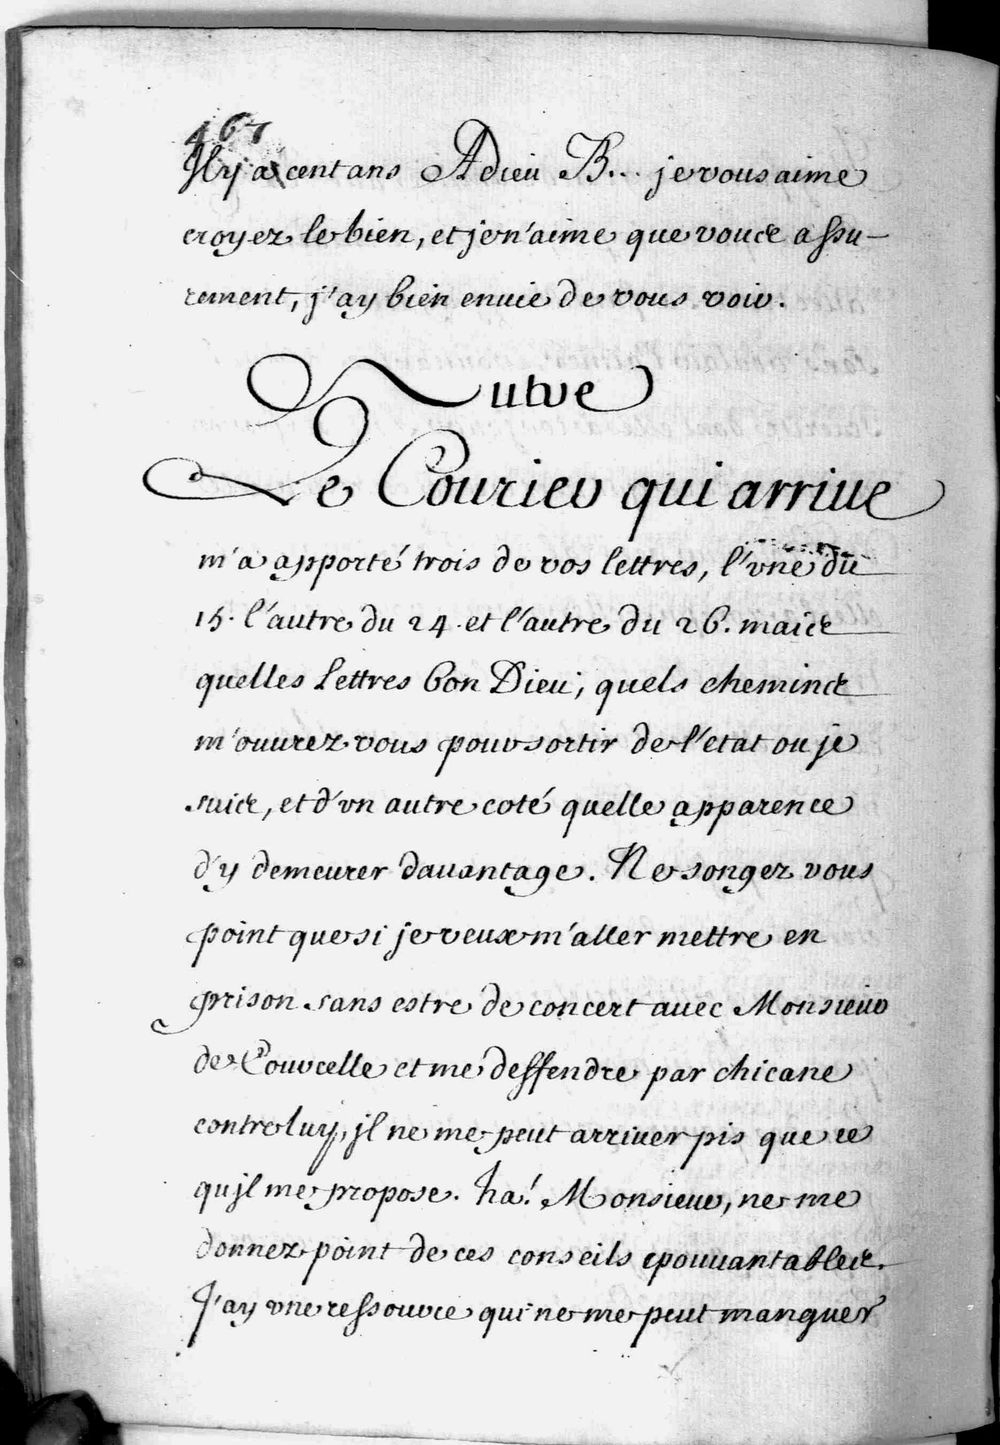 467
Jl y a cent ans Adieu B... je vous aime
croyez le bien, et je n'aime que vous assu-
rement, j'ay bien envie de vous voir.
Autre
Le Courier qui arriue
m'a apporté trois de vos lettres, l'vne du
15. l'autre du 24. et l'autre du 26. mais
quelles Lettres bon Dieu; quels chemins
m'ouurez vous pour sortir de l'état ou je
suis, et d'vn autre coté quelle apparence
d'y demeurer dauantage. Ne songez vous
point que si je veux m'aller mettre en
prison sans estre de concert auec Monsieur
de Courcelle et me deffendre par chicane
contre luy, jl ne me peut arriuer pis que ce
qu jl me propose. ha! Monsieur, ne me
donnez point de ces conseils epouuantables.
J'ay vne ressource qui ne me peut manquer